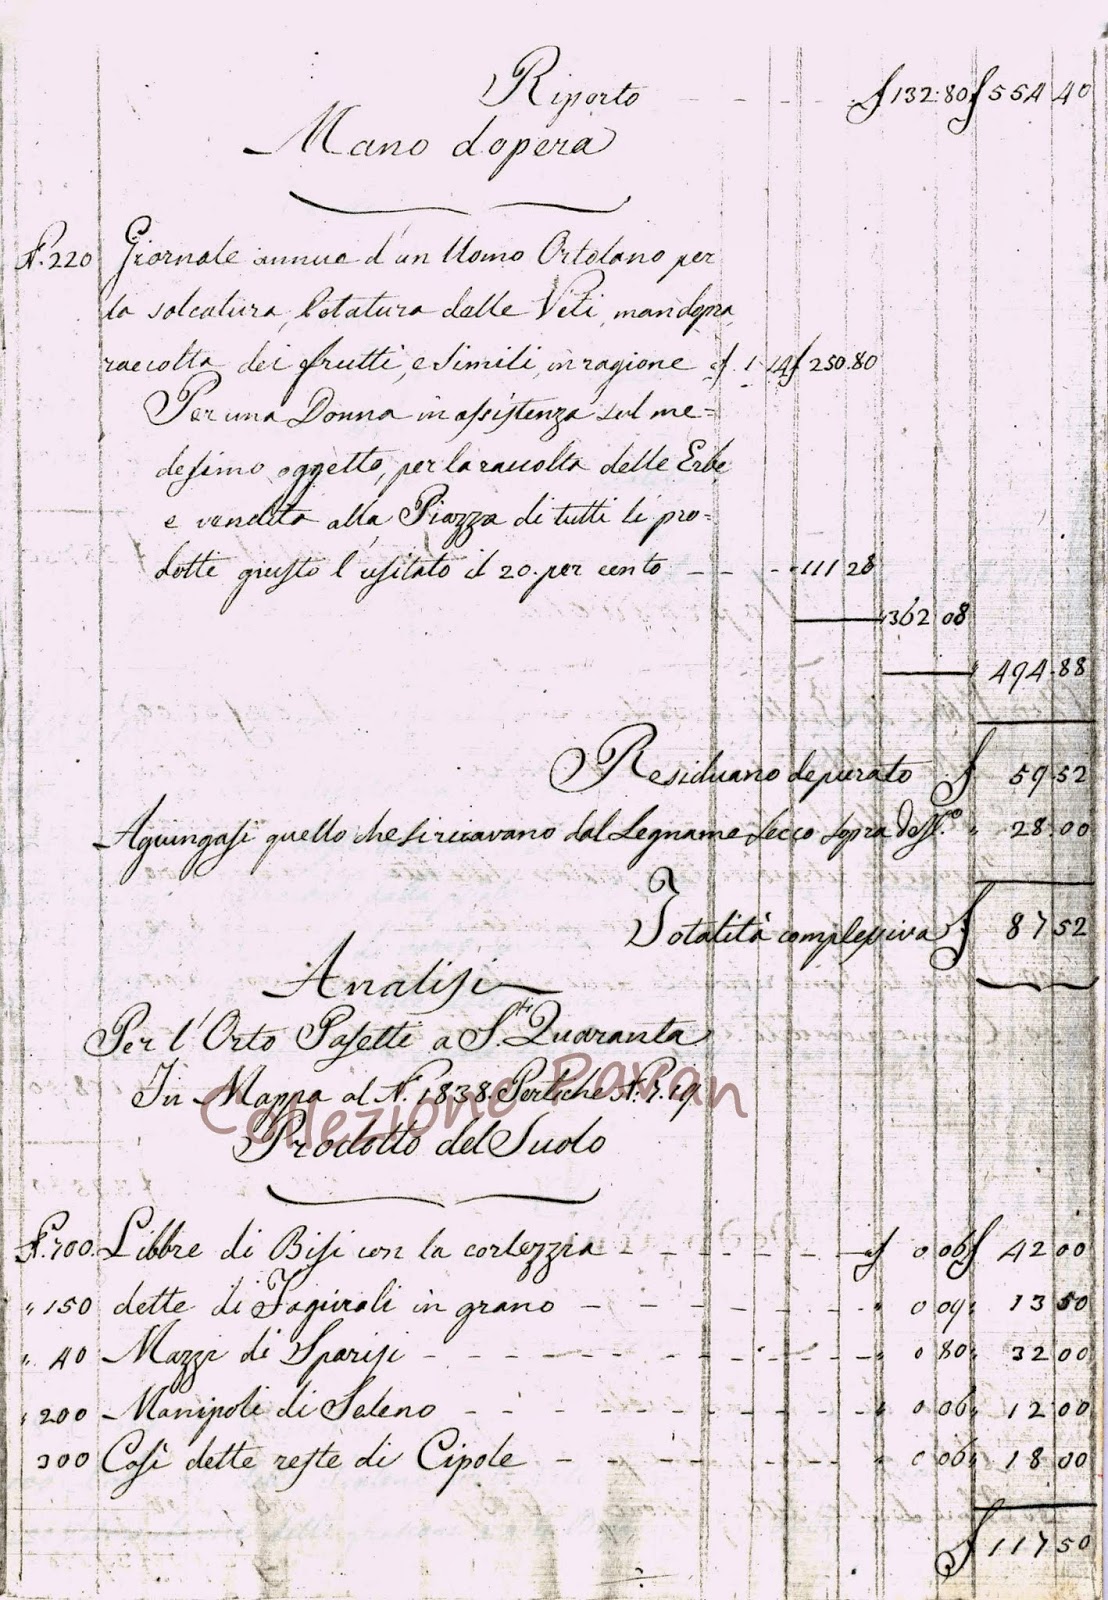 Riporto - - - - £ 132.80 £ 554 40
Mano d'opera
N. 220 Giornale annue d'un Uomo Ortolano per
la solcatura, letatura delle Viti, mandopra,
raccolta dei frutti, e simili, in ragione £ 1.14 £ 250.80
Per una Donna in assistenza sul me=
desimo oggetto, per la raccolta delle Erbe
e vendita alla Piazza di tutti li pro=
dotti giusto l'usitato il 20. per cento - - - " 111 28
" 362 08
" 494.88
Residuano depurato £ 59.52
Agiungasi quello che si ricavano dal Legname secco sopra " 28.00
Totalità complessiva £ 87 52
Analisi
Per l'Orto Pasetti a S.ti Quaranta
In Mappa al N. 1838. Pertiche N. 7.19
Collezione Pavan
Prodotto del Suolo
N. 700. Libbre di Bisi con la cortezzia - - - - - - £ 0 06 £ 42 00
" 150 dette di Fagiuoli in grano - - - - - - " 0 09 " 13 50
" 40 Mazzi di Sparisi - - - - - - " 0 80 " 32 00
" 200 Manipoli di Seleno - - - - - - " 0 06 " 12 00
300 Così dette reste di Cipole - - - - - - " 0 06 " 18 00
£ 117 50